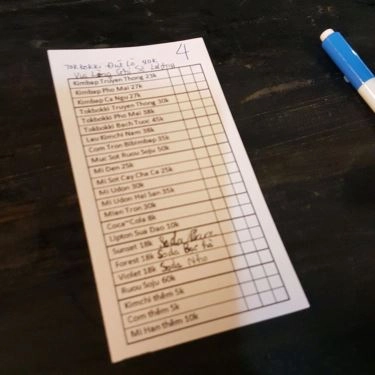 4
Tokbokki Đút Lò 40k
Vui Lòng Ghi Số Lượng
Kimbap Truyen Thong 23k
Kimbap Pho Mai 27k
Kimbap Ca Ngu 27k
Tokbokki Truyen Thong 30k
Tokbokki Pho Mai 38k
Tokbokki Bach Tuoc 45k
Lau Kimchi Nam 38k
Com Tron Bibimbap 35k
Muc Sot Ruou Soju 50k
Mi Den 25k
Mi Sot Cay Cha Ca 25k
Mi Udon 30k
Mi Udon Hai San 35k
Mien Tron 30k
Coca~Cola 8k
Upton Sua Dao 10k
Sunset 18k Soda
Forest 18k Soda Bạc hà
Violet 18k Soda Nho
Ruou Soju 60k
Kimchi thêm 5k
Com thêm 5k
Mi Han thêm 10k